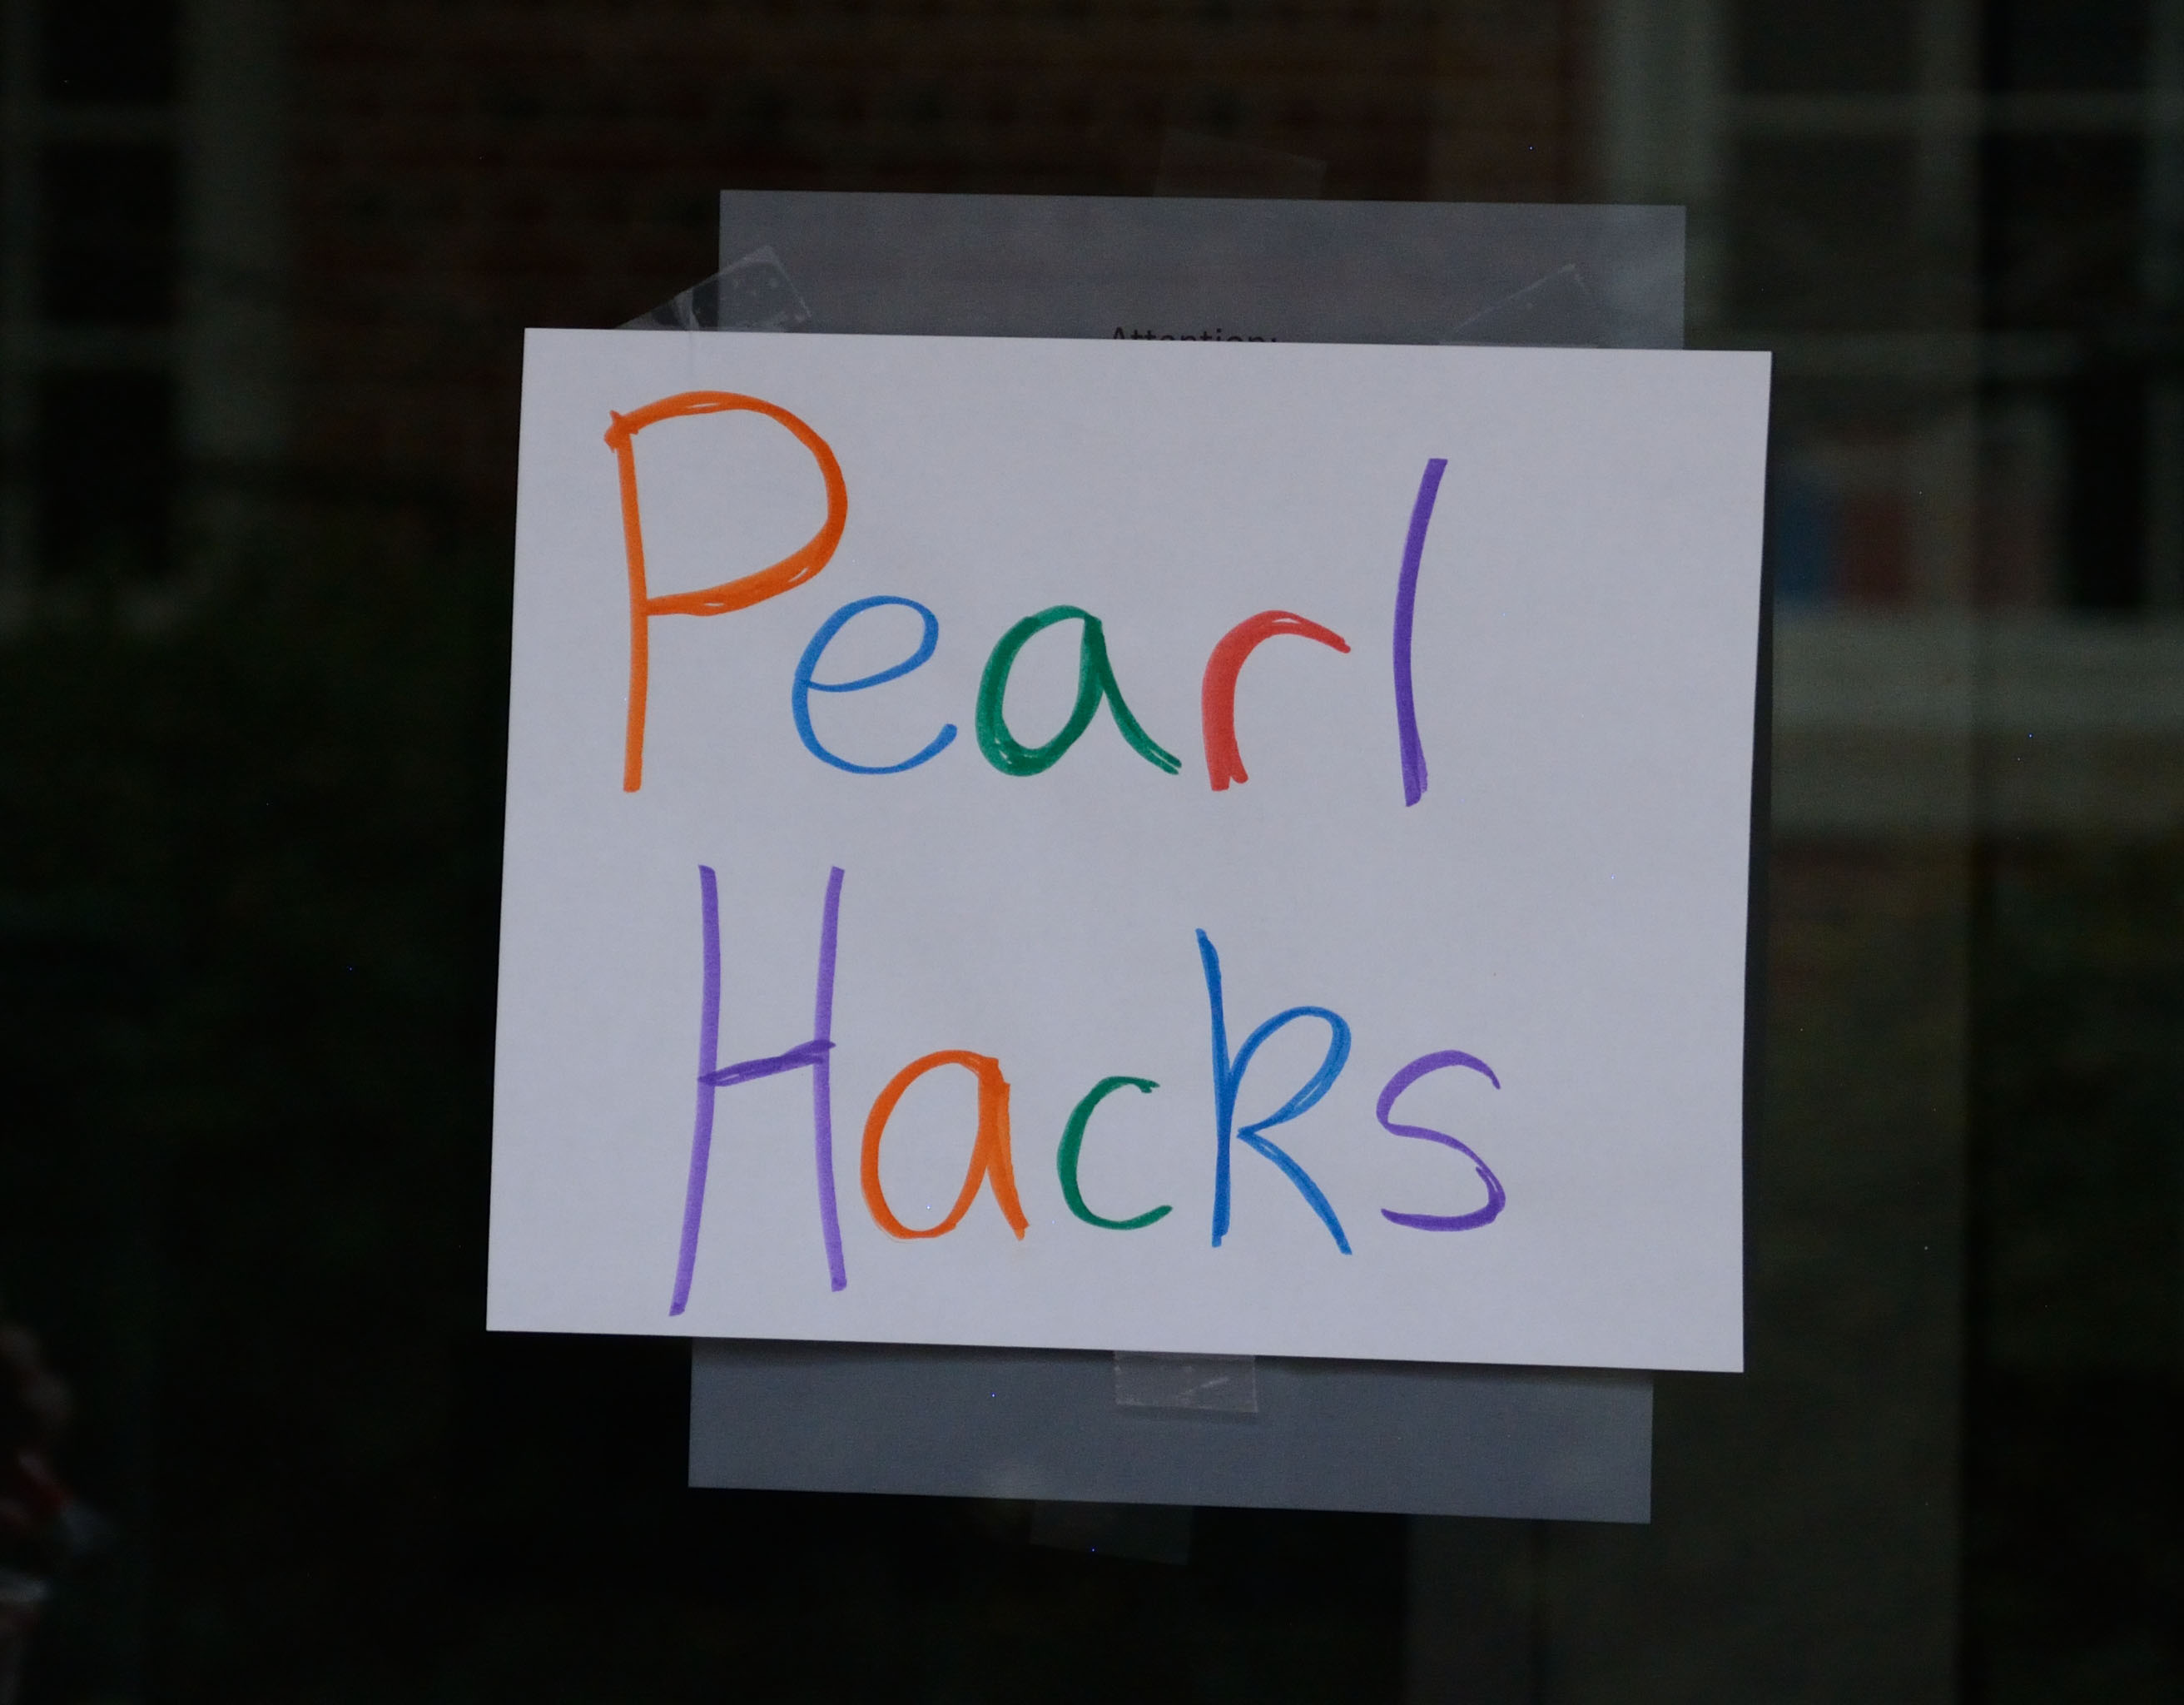 Attention:
Pearl
Hacks